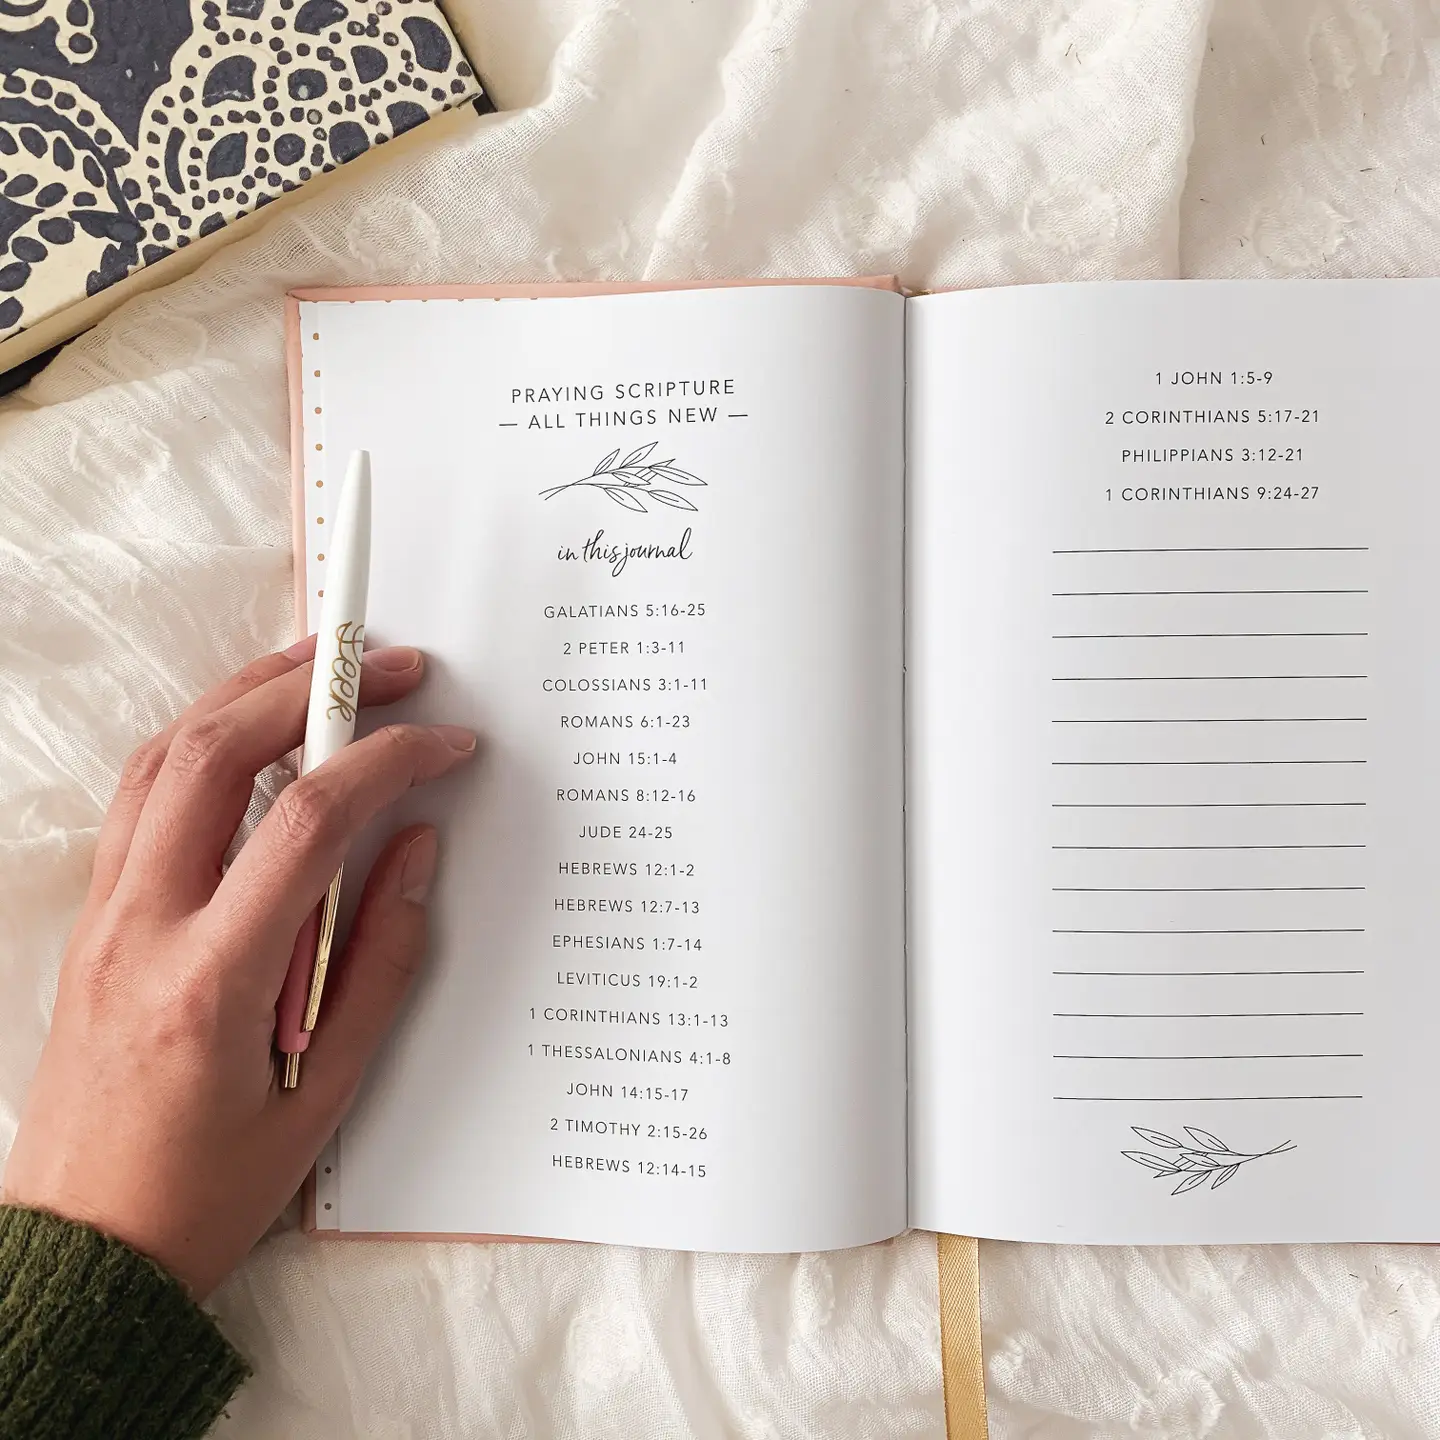 PRAYING SCRIPTURE
— ALL THINGS NEW —
in this journal
GALATIANS 5:16-25
2 PETER 1:3-11
COLOSSIANS 3:1-11
ROMANS 6:1-23
JOHN 15:1-4
ROMANS 8:12-16
JUDE 24-25
HEBREWS 12:1-2
HEBREWS 12:7-13
EPHESIANS 1:7-14
LEVITICUS 19:1-2
1 CORINTHIANS 13:1-13
1 THESSALONIANS 4:1-8
JOHN 14:15-17
2 TIMOTHY 2:15-26
HEBREWS 12:14-15
1 JOHN 1:5-9
2 CORINTHIANS 5:17-21
PHILIPPIANS 3:12-21
1 CORINTHIANS 9:24-27
Seek